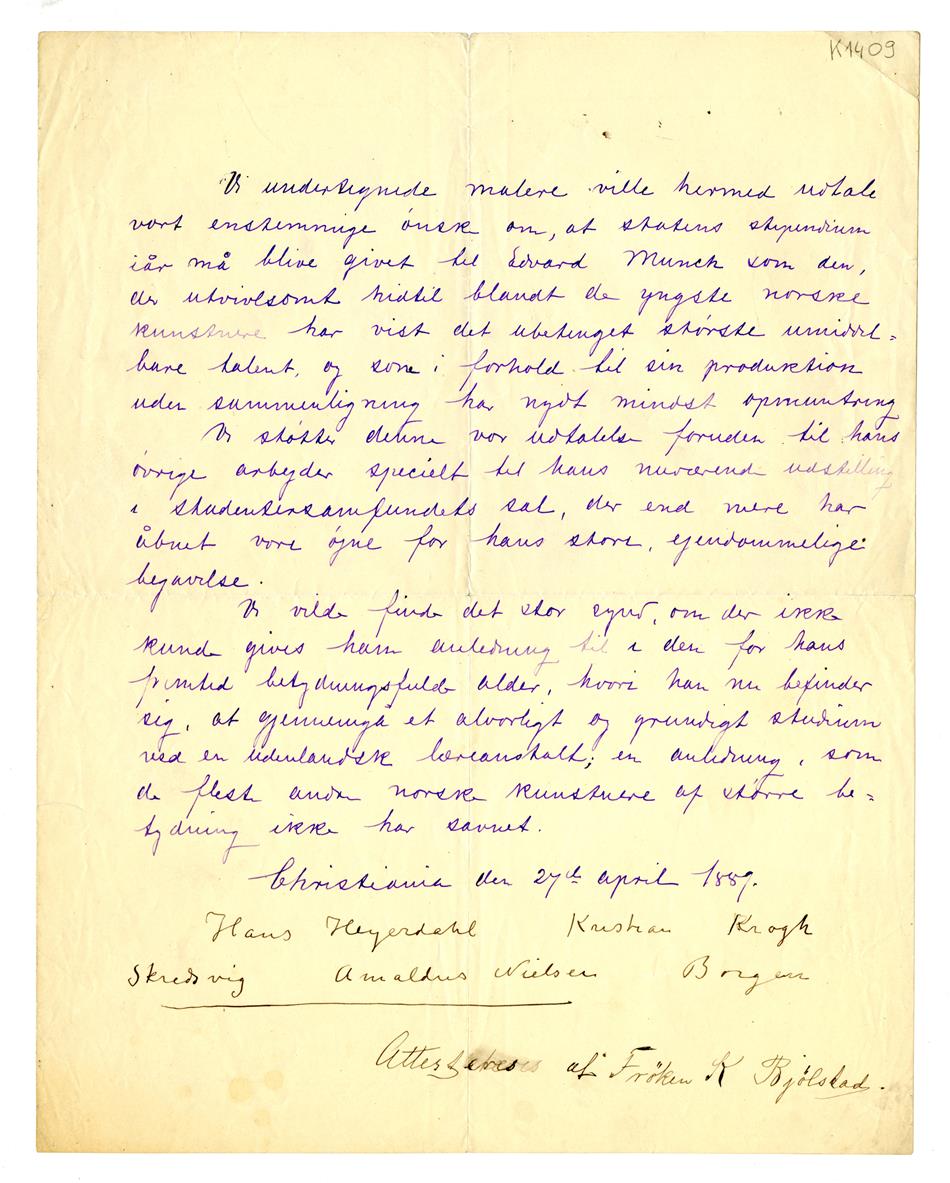 K1409
Vi undertegnede malere ville hermed udtale
vort enstemmige ønske om, at statens stipendium
iår må blive givet til Edvard Munch som den,
der utvivlsomt hidtil blandt de yngste norske
kunstnere har vist det ubetinget største umiddel=
bare talent, og som i forhold til sin produktion
uden sammenligning har nydt mindst opmuntring
Vi støtter denne vor udtalelse foruden til hans
øvrige arbejder specielt til hans nuværende udstilling
i studentersamfundets sal, der end mere har
åbnet vore øjne for hans store, ejendommelige
begavelse.
Vi vilde finde det stor synd, om der ikke
kunde gives ham anledning til i den for hans
fremtid betydningsfulde alder, hvori han nu befinder
sig, at gjennemgå et alvorligt og grundigt studium
ved en udenlandsk læreanstalt; en anledning, som
de fleste andre norske kunstnere af større be=
tydning ikke har savnet.
Christiania den 27de april 1889.
Hans Heyerdahl Kristian Krogh
Skredsvig Amaldus Nielsen Borgen
Atterteres af Frøken K Bjølstad.